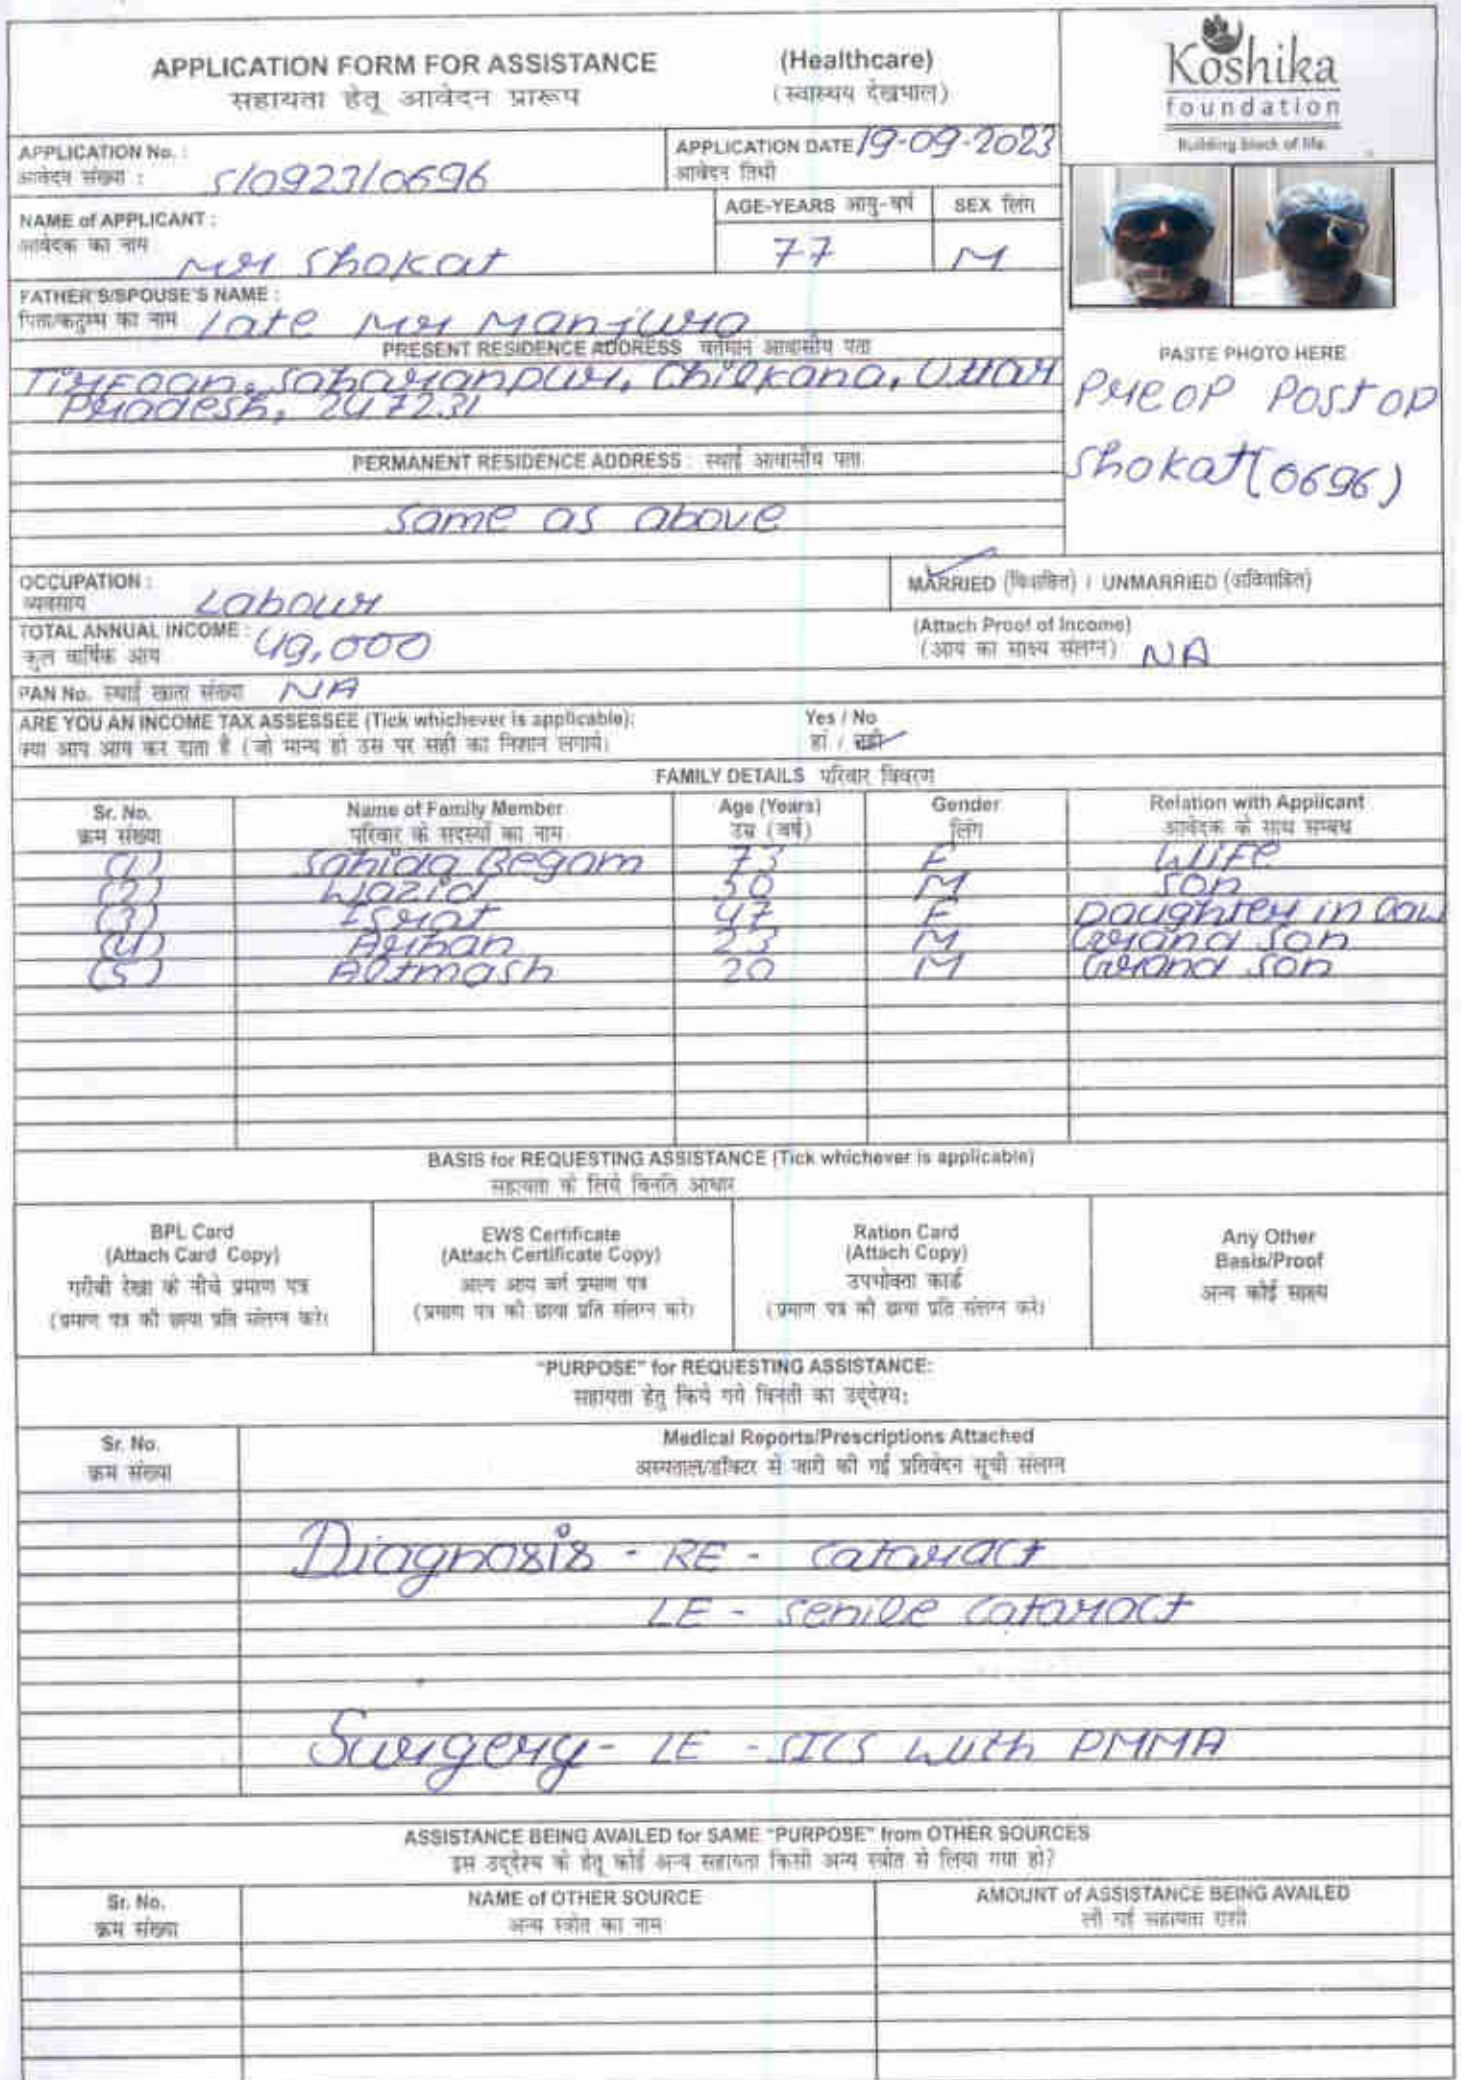 APPLICATION FORM FOR ASSISTANCE (Healthcare)
सहायता हेतू आवेदन प्रारूप (स्वास्थय देखभाल)
Koshika
foundation
Building block of life
APPLICATION No. :
आवेदन संख्या : S/0923/0696
APPLICATION DATE 19-09-2023
आवेदन तिथी
NAME of APPLICANT :
आवेदक का नाम Mr Shokat
AGE-YEARS आयु-वर्ष
77
SEX लिंग
M
FATHER'S/SPOUSE'S NAME :
पिता/कटुम्ब का नाम Late Mr Manjura
PRESENT RESIDENCE ADDRESS वर्तमान आवासीय पता
Saharanpur, Chilkana, Uttar
Pradesh, 247231
PERMANENT RESIDENCE ADDRESS : स्थाई आवासीय पता
Same as above
PASTE PHOTO HERE
Preop Postop
Shokat (0696)
OCCUPATION :
व्यवसाय Labour
MARRIED (विवाहित) / UNMARRIED (अविवाहित)
TOTAL ANNUAL INCOME :
कुल वार्षिक आय 49,000
(Attach Proof of Income)
(आय का साक्ष्य संलग्न) NA
PAN No. स्थाई खाता संख्या NA
ARE YOU AN INCOME TAX ASSESSEE (Tick whichever is applicable): Yes / No
क्या आप आय कर दाता है (जो मान्य हो उस पर सही का निशान लगाये) हां / नही
FAMILY DETAILS परिवार विवरण
Sr. No. Name of Family Member Age (Years) Gender Relation with Applicant
क्रम संख्या परिवार के सदस्यों का नाम उम्र (वर्ष) लिंग आवेदक के साथ सम्बध
(1) Sahida Begam 73 F Wife
(2) Wazid 50 M Son
(3) Israt 47 F Daughter in law
(4) Arihan 23 M Grand son
(5) Altmash 20 M Grand son
BASIS for REQUESTING ASSISTANCE (Tick whichever is applicable)
सहायता के लिये विनति आधार
BPL Card
(Attach Card Copy)
गरीबी रेखा के नीचे प्रमाण पत्र
(प्रमाण पत्र की छाया प्रति संलग्न करे)
EWS Certificate
(Attach Certificate Copy)
अल्प आय वर्ग प्रमाण पत्र
(प्रमाण पत्र की छाया प्रति संलग्न करे)
Ration Card
(Attach Copy)
उपभोक्ता कार्ड
(प्रमाण पत्र की छाया प्रति संलग्न करे)
Any Other
Basis/Proof
अन्य कोई साक्ष्य
"PURPOSE" for REQUESTING ASSISTANCE:
सहायता हेतु किये गये विनती का उद्देश्य:
Sr. No. Medical Reports/Prescriptions Attached
क्रम संख्या अस्पताल/डॉक्टर से जारी की गई प्रतिवेदन सूची संलग्न
Diagnosis - RE - Cataract
LE - Senile Cataract
Surgery - LE - SICS with PMMA
ASSISTANCE BEING AVAILED for SAME "PURPOSE" from OTHER SOURCES
इस उद्देश्य के हेतू कोई अन्य सहायता किसी अन्य स्त्रोत से लिया गया हो?
Sr. No. NAME of OTHER SOURCE AMOUNT of ASSISTANCE BEING AVAILED
क्रम संख्या अन्य स्त्रोत का नाम ली गई सहायता राशी